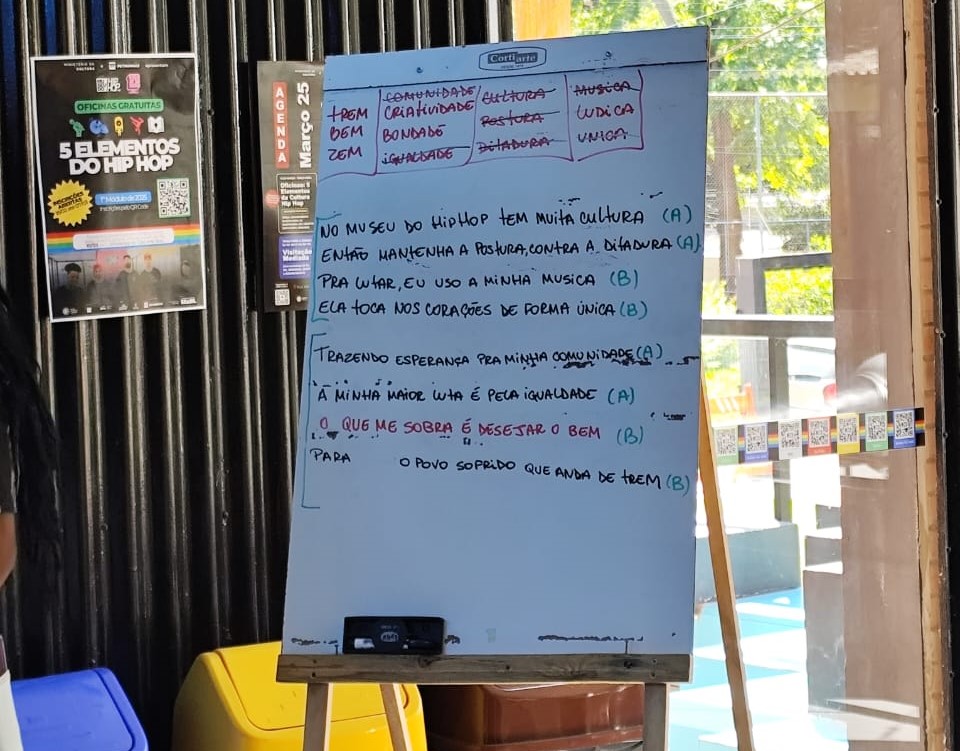 MINISTÉRIO DA CULTURA
PETROBRAS
HIP HOP
OFICINAS GRATUITAS
5 ELEMENTOS
DO HIP HOP
INSCRIÇÕES
ABERTAS
1º Módulo de 2025
AGENDA
Março 25
Oficinas: 5
Elementos
da Cultura
Hip Hop
Visitação
Mediada
Corfiarte
TREM
BEM
ZEM
COMUNIDADE
CRIATIVIDADE
BONDADE
IGUALDADE
CULTURA
POSTURA
DITADURA
MUSICA
LUDICA
UNICA
NO MUSEU DO HIPHOP TEM MUITA CULTURA (A)
ENTÃO MANTENHA A POSTURA, CONTRA A DITADURA (A)
PRA LUTAR, EU USO A MINHA MUSICA (B)
ELA TOCA NOS CORAÇÕES DE FORMA ÚNICA (B)
TRAZENDO ESPERANÇA PRA MINHA COMUNIDADE (A)
A MINHA MAIOR LUTA É PELA IGUALDADE (A)
O QUE ME SOBRA É DESEJAR O BEM (B)
PARA O POVO SOFRIDO QUE ANDA DE TREM (B)